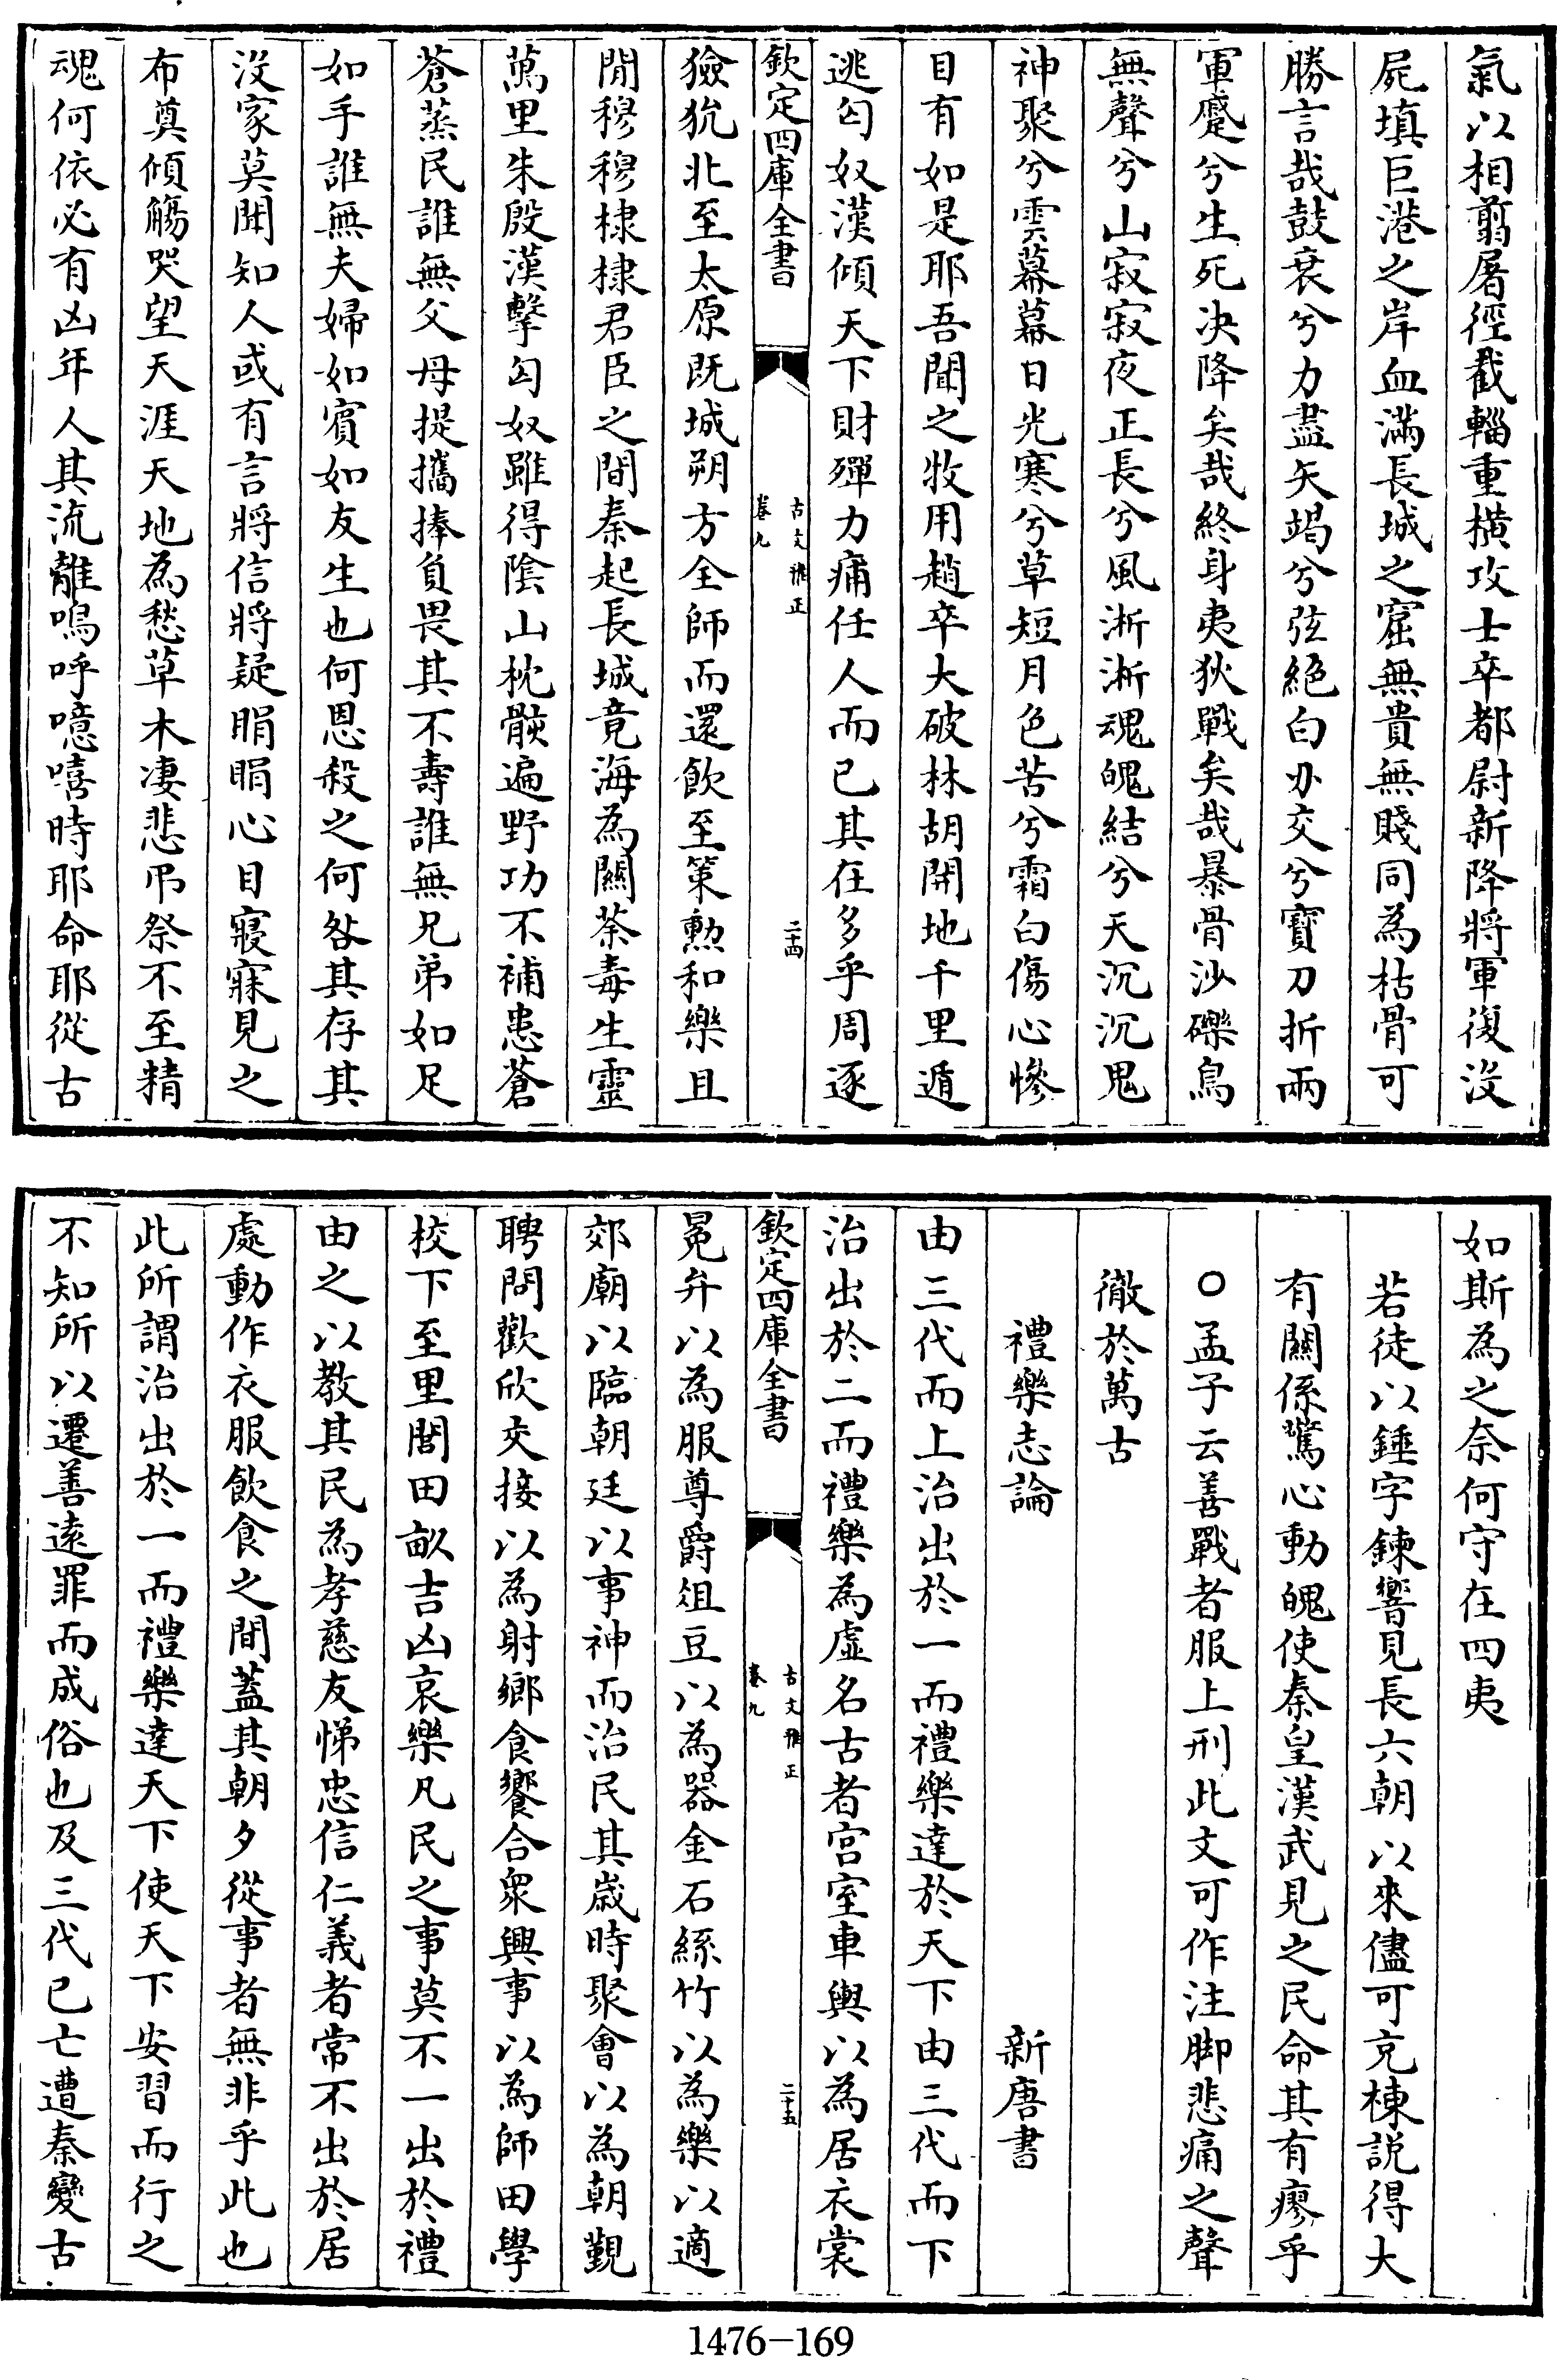 氣以相翦屠徑截輜重横攻士卒都尉新降將軍復沒
屍填巨港之岸血滿長城之窟無貴無賤同為枯骨可
勝言哉鼓衰兮力盡矢竭兮弦絕白刃交兮寶刀折兩
軍蹙兮生死决降矣哉終身夷狄戰矣哉暴骨沙礫鳥
無聲兮山寂寂夜正長兮風淅淅魂魄結兮天沉沉鬼
神聚兮雲幕幕日光寒兮草短月色苦兮霜白傷心慘
目有如是耶吾聞之牧用趙卒大破林胡開地千里遁
逃匈奴漢傾天下財殫力痡任人而已其在多乎周逐
欽定四庫全書
古文雅正
卷九
二十四
獫狁北至太原既城朔方全師而還飲至策勲和樂且
閒穆穆棣棣君臣之間秦起長城竟海為關荼毒生靈
萬里朱殷漢擊匈奴雖得陰山枕骸遍野功不補患蒼
蒼蒸民誰無父母提攜捧負畏其不壽誰無兄弟如足
如手誰無夫婦如賓如友生也何恩殺之何咎其存其
沒家莫聞知人或有言將信將疑悁悁心目寢寐見之
布奠傾觴哭望天涯天地為愁草木凄悲弔祭不至精
魂何依必有凶年人其流離嗚呼噫嘻時耶命耶從古
如斯為之奈何守在四夷
若徒以錘字鍊響見長六朝以來儘可充棟説得大
有關係驚心動魄使秦皇漢武見之民命其有瘳乎
○孟子云善戰者服上刑此文可作注脚悲痛之聲
徹於萬古
禮樂志論
新唐書
由三代而上治出於一而禮樂達於天下由三代而下
治出於二而禮樂為虛名古者宫室車輿以為居衣裳
欽定四庫全書
古文雅正
卷九
二十五
冕弁以為服尊爵俎豆以為器金石絲竹以為樂以適
郊廟以臨朝廷以事神而治民其歲時聚會以為朝覲
聘問歡欣交接以為射鄉食饗合衆興事以為師田學
校下至里閭田畝吉凶哀樂凡民之事莫不一出於禮
由之以教其民為孝慈友悌忠信仁義者常不出於居
處動作衣服飲食之間蓋其朝夕從事者無非乎此也
此所謂治出於一而禮樂達天下使天下安習而行之
不知所以遷善遠罪而成俗也及三代已亡遭秦變古
1476-169